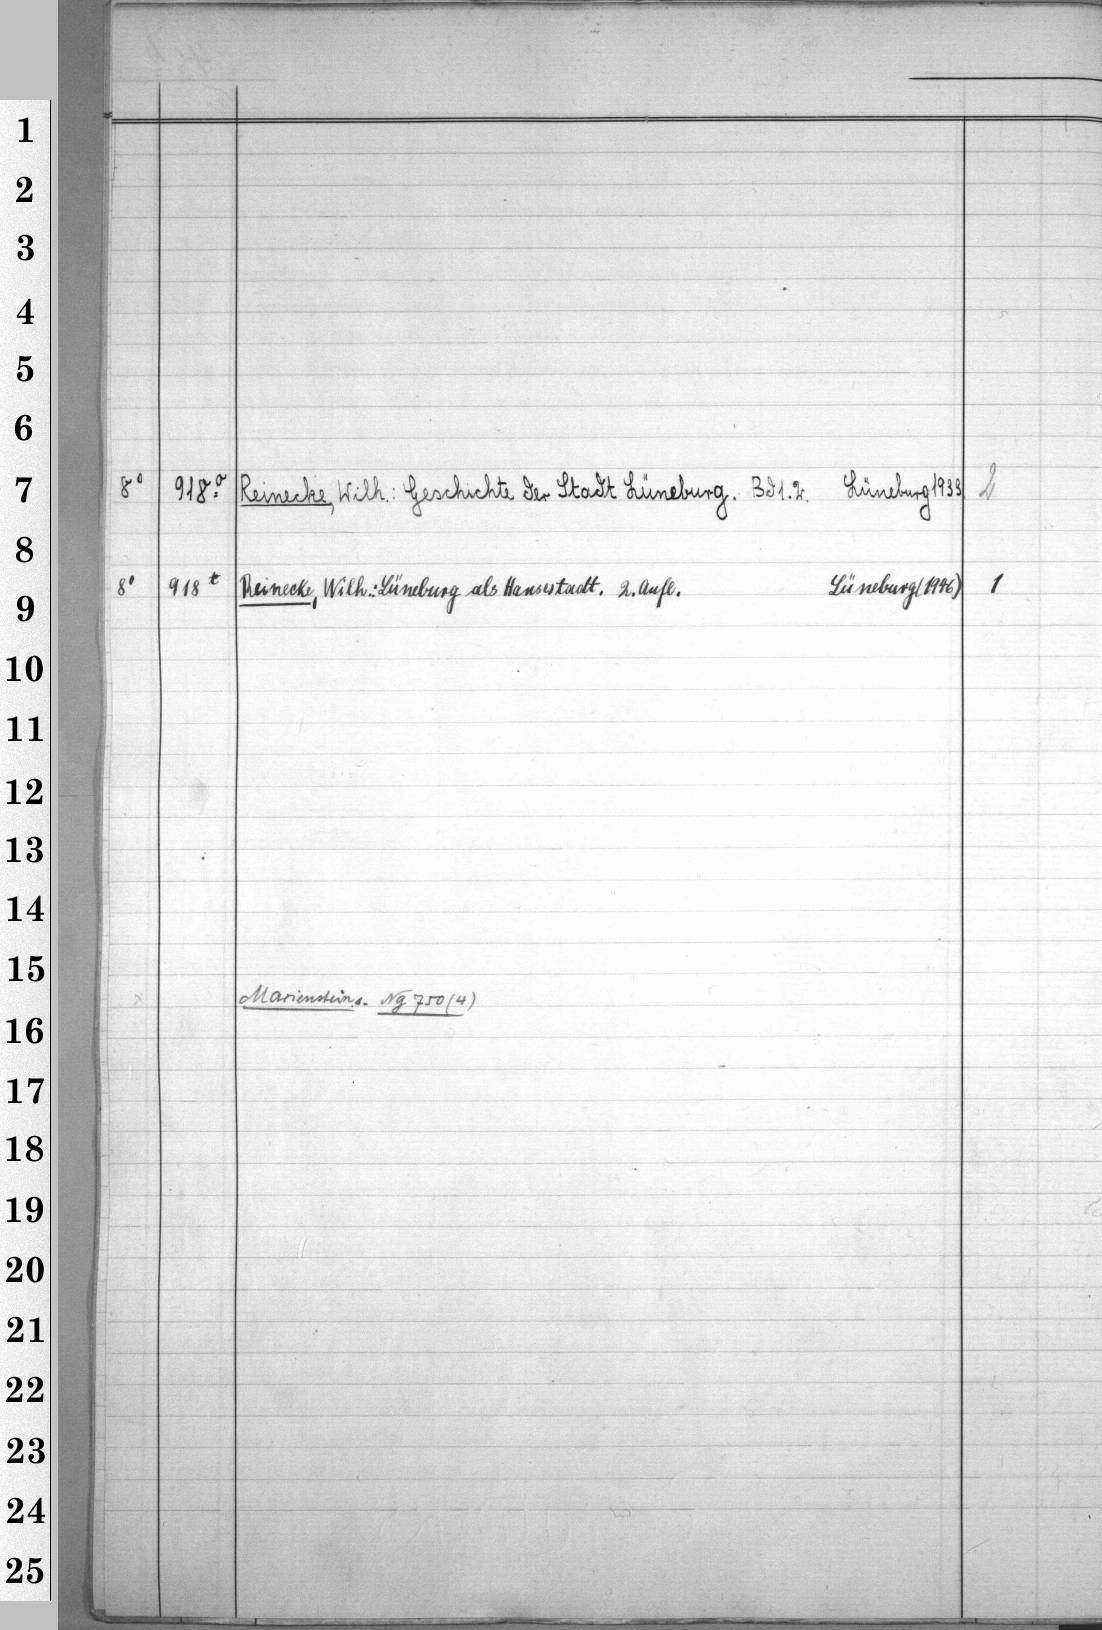 1
2
3
4
5
6
7
8° 918:ᵃ Reinecke, Wilh.: Geschichte der Stadt Lüneburg. Bd 1. 2. Lüneburg 1933 2
8
8° 918ᵗ Reinecke, Wilh.: Lüneburg als Hansestadt. 2. Aufl. Lüneburg (1946) 1
9
10
11
12
13
14
15
Marienstein s. Ng 750 (4)
16
17
18
19
20
21
22
23
24
25